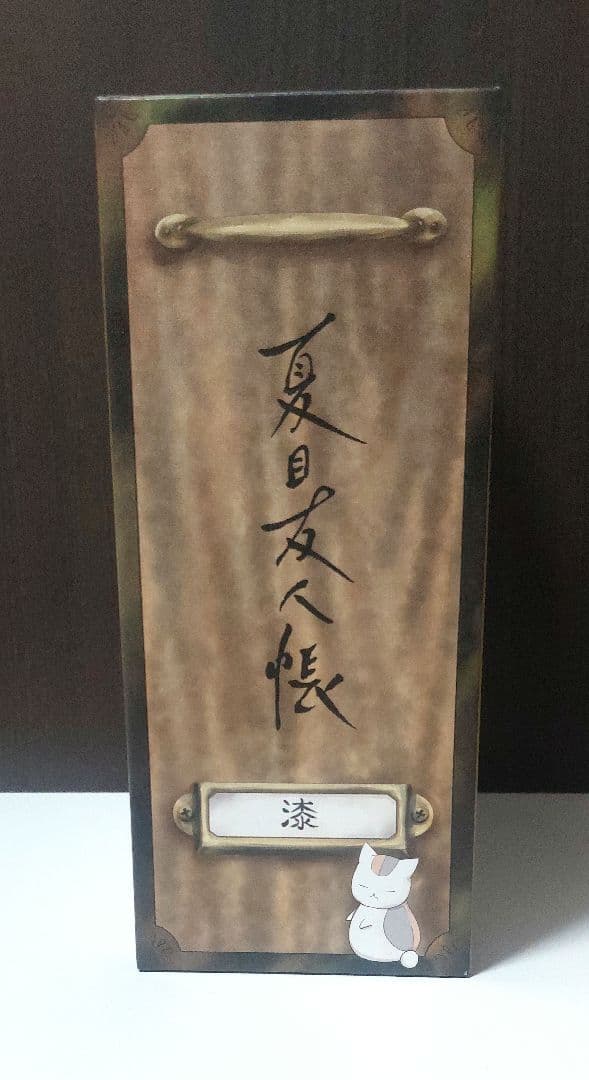 夏目友人帳
漆